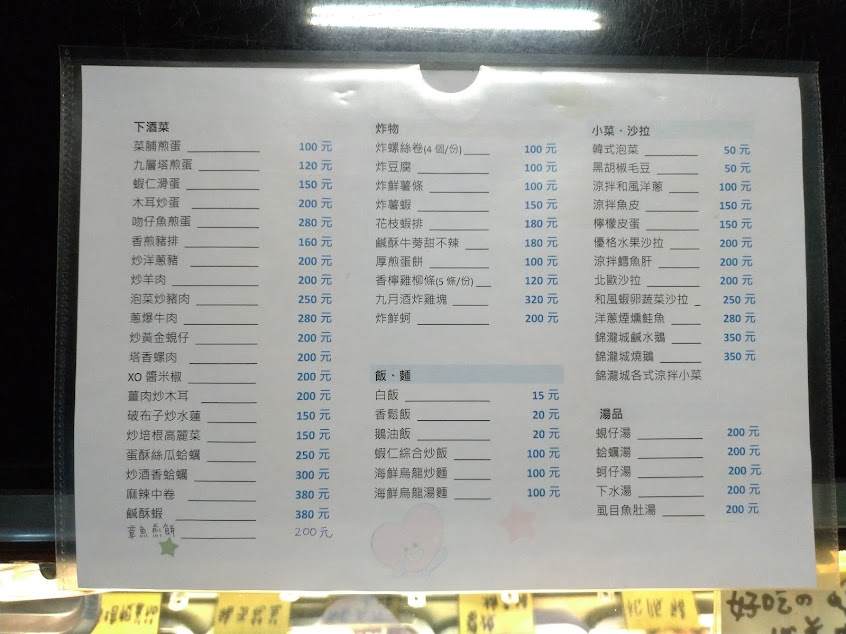 下酒菜
菜脯煎蛋 100 元
九層塔煎蛋 120 元
蝦仁滑蛋 150 元
木耳炒蛋 200 元
吻仔魚煎蛋 280 元
香煎豬排 160 元
炒洋蔥豬 200 元
炒羊肉 200 元
泡菜炒豬肉 250 元
蔥爆牛肉 280 元
炒黃金蜆仔 200 元
塔香螺肉 200 元
XO 醬米椒 200 元
薑肉炒木耳 200 元
破布子炒水蓮 150 元
炒培根高麗菜 150 元
蛋酥絲瓜蛤蠣 250 元
炒酒香蛤蠣 300 元
麻辣中卷 380 元
鹹酥蝦 380 元
章魚煎餅 200元
炸物
炸螺絲卷(4 個/份) 100 元
炸豆腐 100 元
炸鮮薯條 100 元
炸薯蝦 150 元
花枝蝦排 180 元
鹹酥牛蒡甜不辣 180 元
厚煎蛋餅 100 元
香檸雞柳條(5 條/份) 120 元
九月酒炸雞塊 320 元
炸鮮蚵 200 元
飯、麵
白飯 15 元
香鬆飯 20 元
鵝油飯 20 元
蝦仁綜合炒飯 100 元
海鮮烏龍炒麵 100 元
海鮮烏龍湯麵 100 元
小菜、沙拉
韓式泡菜 50 元
黑胡椒毛豆 50 元
涼拌和風洋蔥 100 元
涼拌魚皮 150 元
檸檬皮蛋 150 元
優格水果沙拉 200 元
涼拌鱈魚肝 200 元
北歐沙拉 200 元
和風蝦卵蔬菜沙拉 250 元
洋蔥煙燻鮭魚 280 元
錦瀧城鹹水鵝 350 元
錦瀧城燒鵝 350 元
錦瀧城各式涼拌小菜
湯品
蜆仔湯 200 元
蛤蠣湯 200 元
蚵仔湯 200 元
下水湯 200 元
虱目魚肚湯 200 元
好吃の